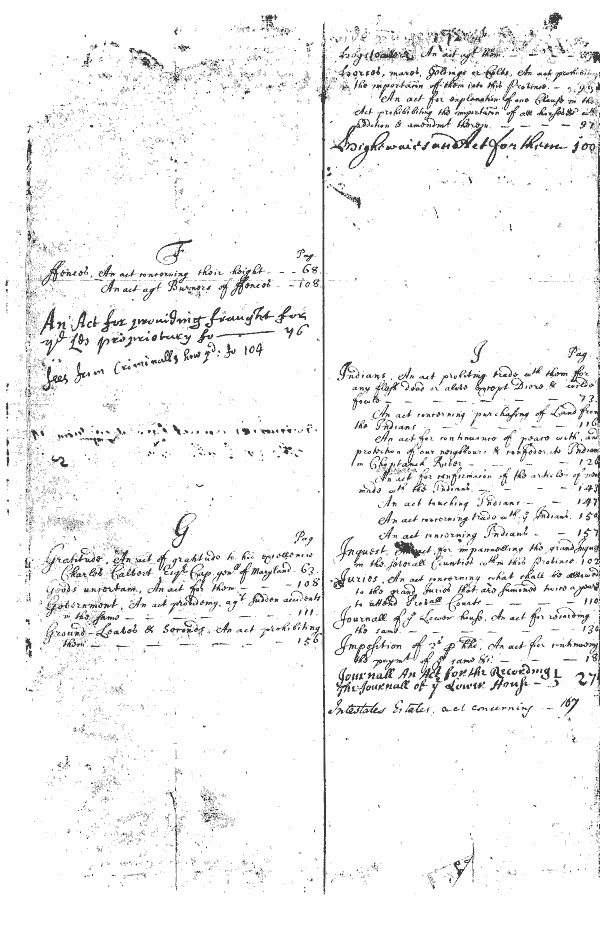 F
Pag
ffences, An act concerning their height - - 68
An act agt Burners of ffences - - 108
An Act for providing fraught for
ye Lds proprietary fo 46
ffees from Criminalls how pd: fo 104
G
Pag
Gratitude, An act of gratitude to his excellencie
Charles Calvert Esqr Capt genll of Maryland - 63
Goods uncertain, An act for them - - 108
Government, An act provideing agt sudden accidents
in the same - - 111
Ground-Leaves & Seconds, An act prohibiting
them - - 156
An act agt them
Horses, mares, Geldings or Colts, An act prohibiting
the importacon of them into this Province - - 95
An act for explanation of one Clause in the
Act prohibiting the importacon of all horses &
addition & amendmt thereon - - 97
Highwaies and Act for them 100
I
Pag
Indians, An act prohiting trade wth them for
any flesh dead or alive except Deere & wild
fowle - - 73
An act concerning purchasing of Land from
the Indians - - 116
An act for continuance of peace with, and
protection of our neighbours & confederate Indians
in Choptanck River - - 126
An act for confirmacon of the articles of
made wth the Indians - - 143
An act touching Indians - - 147
An act concerning trade with ye Indians 150
An act concerning Indians - - 157
Inquest, An act for impannelling the grand Inquest
in the severall Counties wthin this Province 102
Juries, An act concerning what shall be allowed
to the grand Juries that are summoned twice a yeare
to attend Provll Courts - - 110
Journall of ye Lower house, An act for recording
the same - - 134
Imposition of 2s p hhd, An act for continuing
the paymt of ye same &c - - 18
Journall An Act for the Recording
the Journall of ye Lower House - 27
Intestates Estates, act concerning - 167